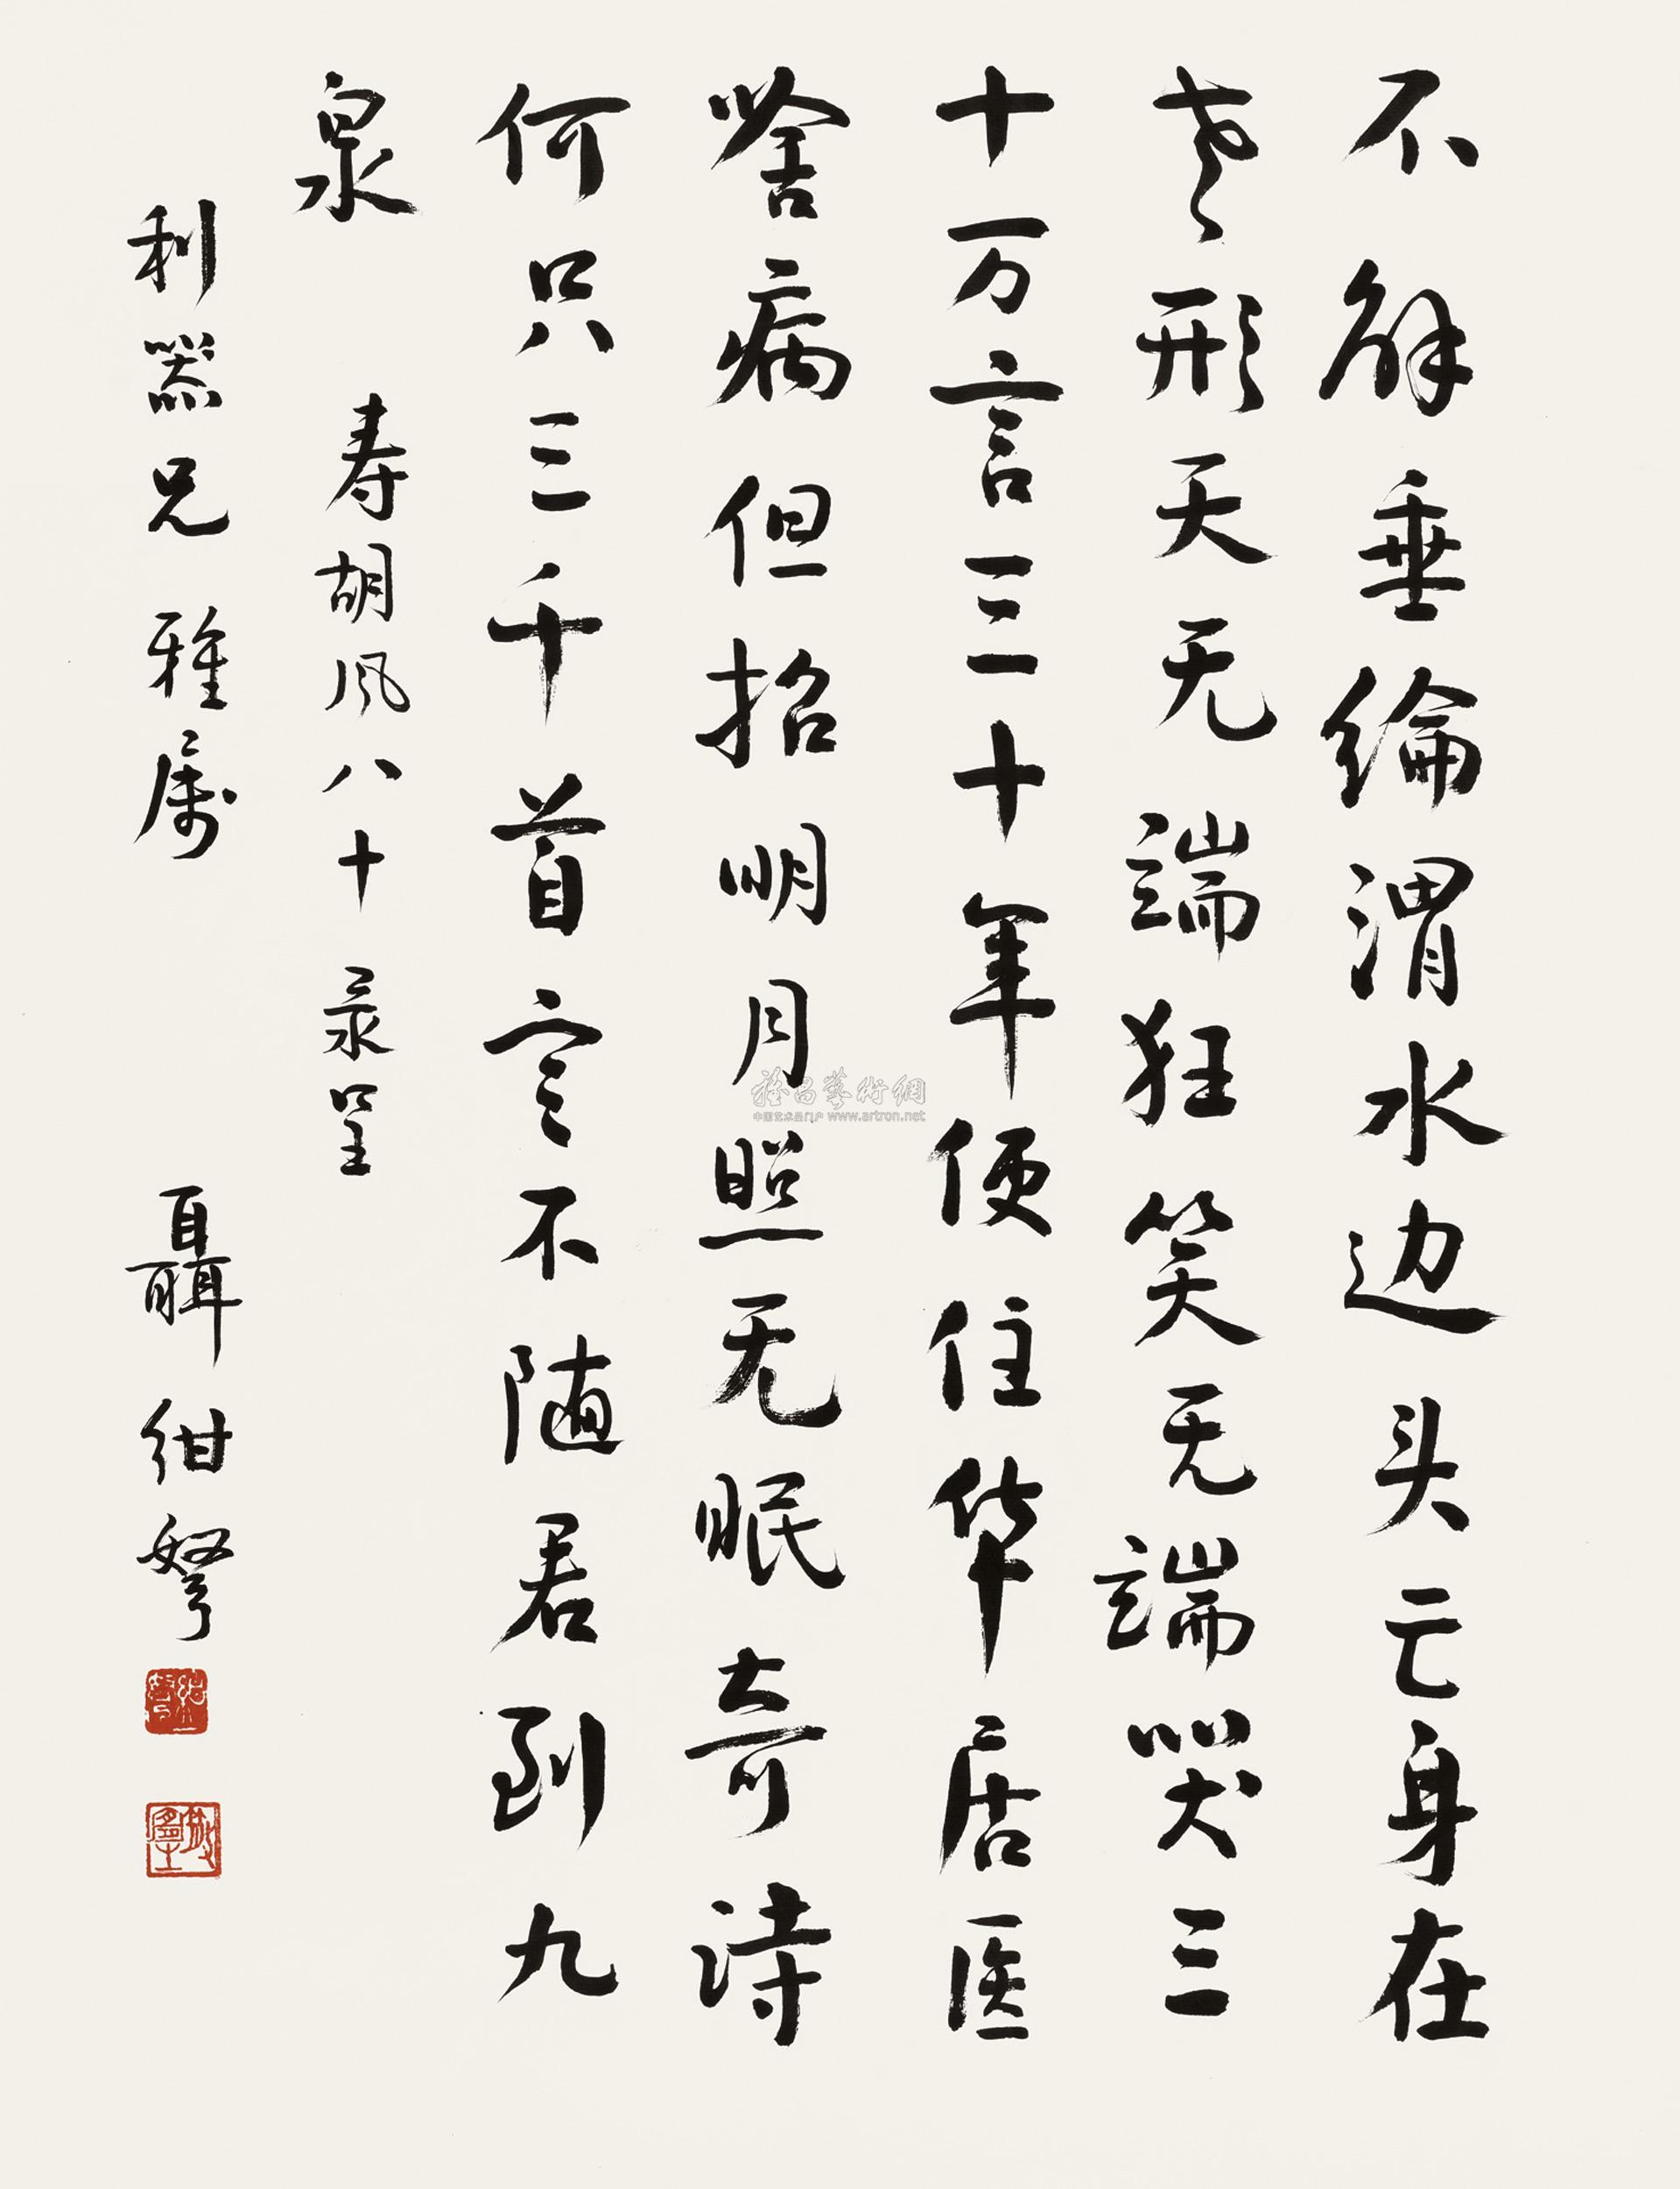 不解垂纶渭水边头亡身在
老形天无端狂笑无端哭三
十万言三十年便住华居医
啥病但招明月照无眠奇诗
何只三千首定不随君到九
泉 寿胡风八十录呈
利器兄 雅属 聶绀弩
雅昌藝術網
中国艺术品门户 www.artron.net